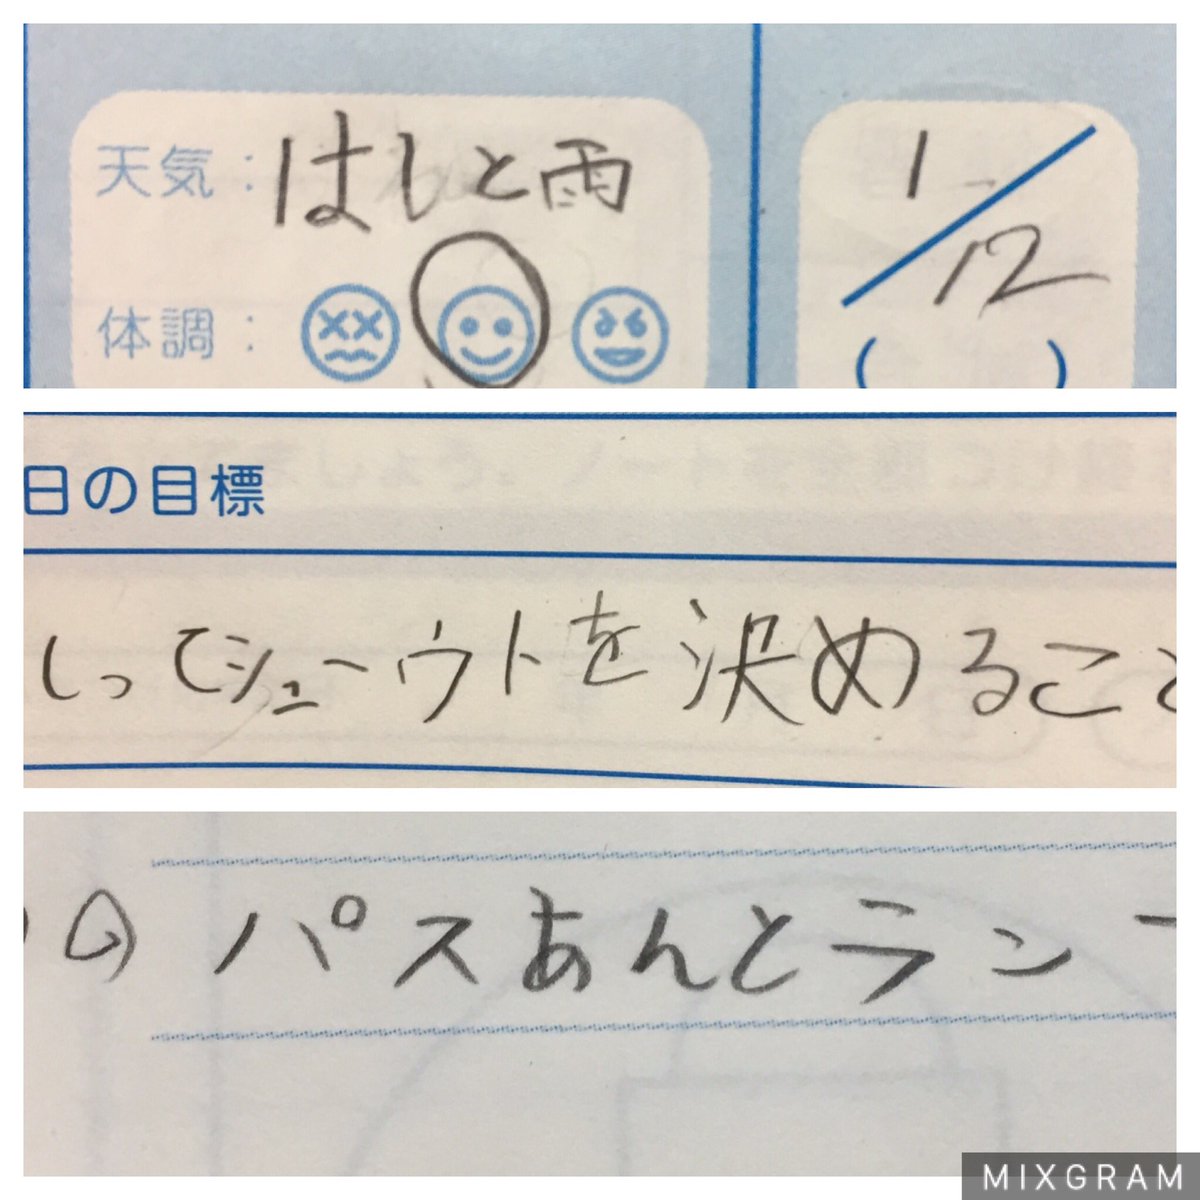 天気：はしと雨
1/12
体調：
( )
日の目標
しってシュートを決めること
の パスあんとラン
MIXGRAM